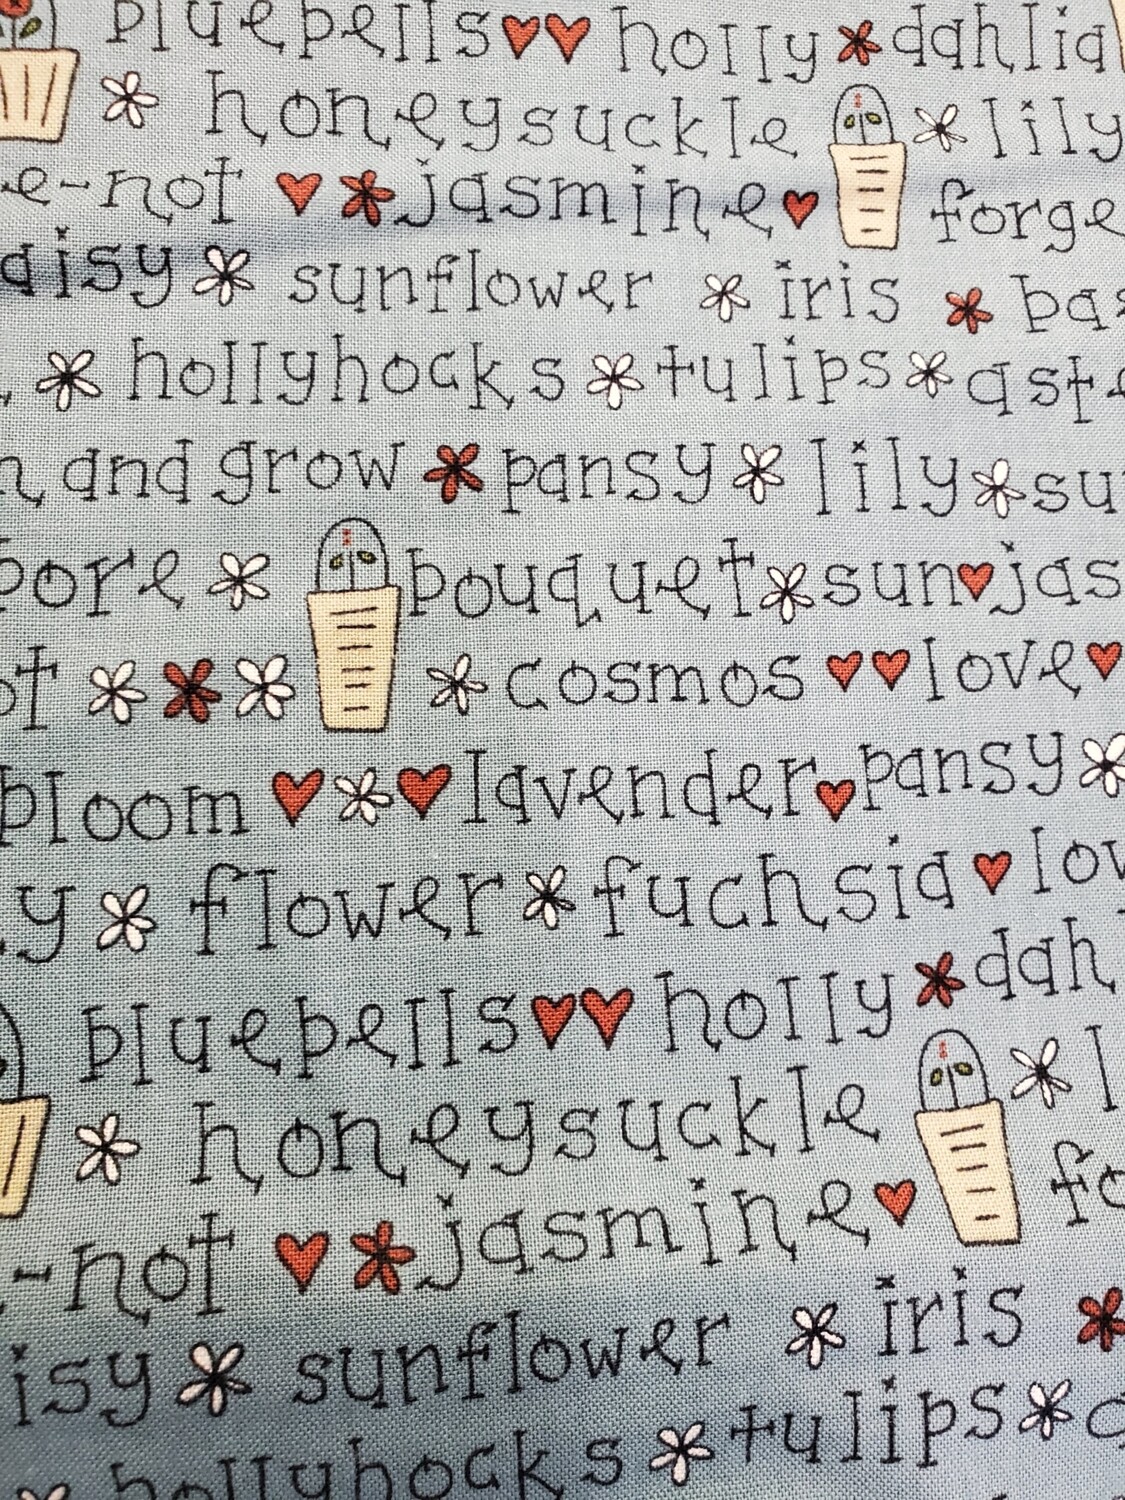 bluebells holly dahlia
honeysuckle lily
e-not jasmine forge
daisy sunflower iris
hollyhocks tulips
and grow pansy lily su
bouquet sun jas
cosmos love
bloom lavender pansy
y flower fuchsia lov
bluebells holly dah
honeysuckle
-not jasmine fo
isy sunflower iris
hollyhocks tulips